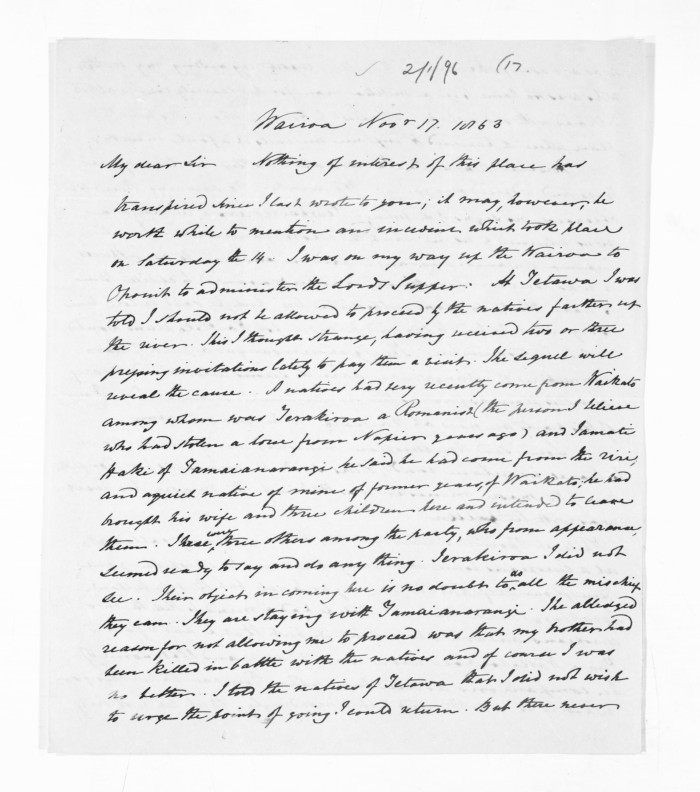 2/1/96 (17.
Wairoa Novr 17. 1863
My dear Sir Nothing of interest of this place has
transpired since I last wrote to you; it may, however, be
worth while to mention an which took place
on Saturday the 14. I was on my way up the Wairoa to
to administer the Lords Supper. At Tetawa I was
told I should not be allowed to proceed by the natives farther up
the river. This I thought strange, having received two or three
pressing invitations lately to pay them a visit. The sequel will
reveal the cause. natives had very recently come from Waikato
among whom was Terakiroa a Romanist (the person I believe
who had stolen a horse from Napier years ago) and
of Tamaianarangi he said he had come from the
and a quiet native of mine of former years, of Waikato; he had
brought his wife and three children here and intended to leave
them. were three others among the party, who from appearance,
seemed ready to say and do any thing. Terakiroa I did not
see. Their object in coming here is no doubt to do all the mischief
they can. They are staying with Tamaianarangi. The alledged
reason for not allowing me to proceed was that my brother had
been killed in battle with the natives and of course I was
no better. I told the natives of Tetawa that I did not wish
to urge the point of going. I could return. But there never